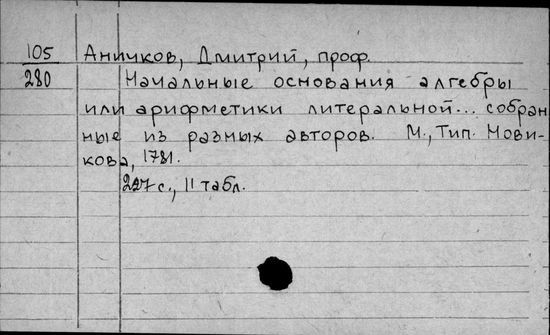 105 Аничков, Дмитрий, проф.
280 Начальные основания алгебры
или арифметики литеральной... собран
ные из разных авторов. М., Тип. Нови-
кова, 1781.
227 с., 11 табл.